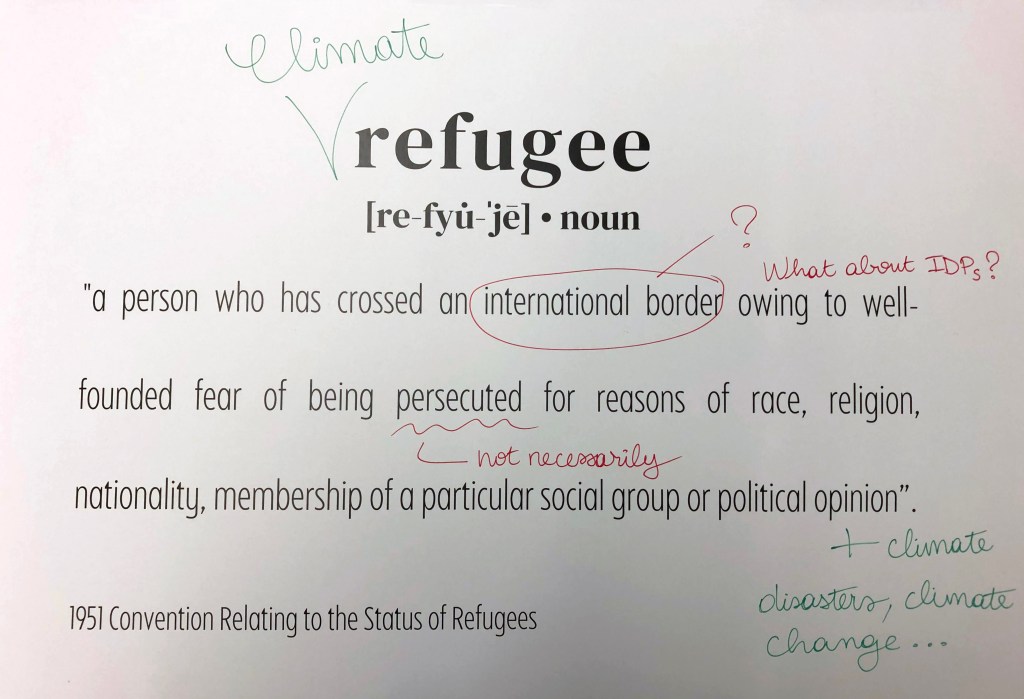 Climate
refugee
[re-fyu̇-ˈjē] • noun
?
What about IDPs?
"a person who has crossed an international border owing to well-
founded fear of being persecuted for reasons of race, religion,
not necessarily
nationality, membership of a particular social group or political opinion”.
+ climate
disasters, climate
change...
1951 Convention Relating to the Status of Refugees